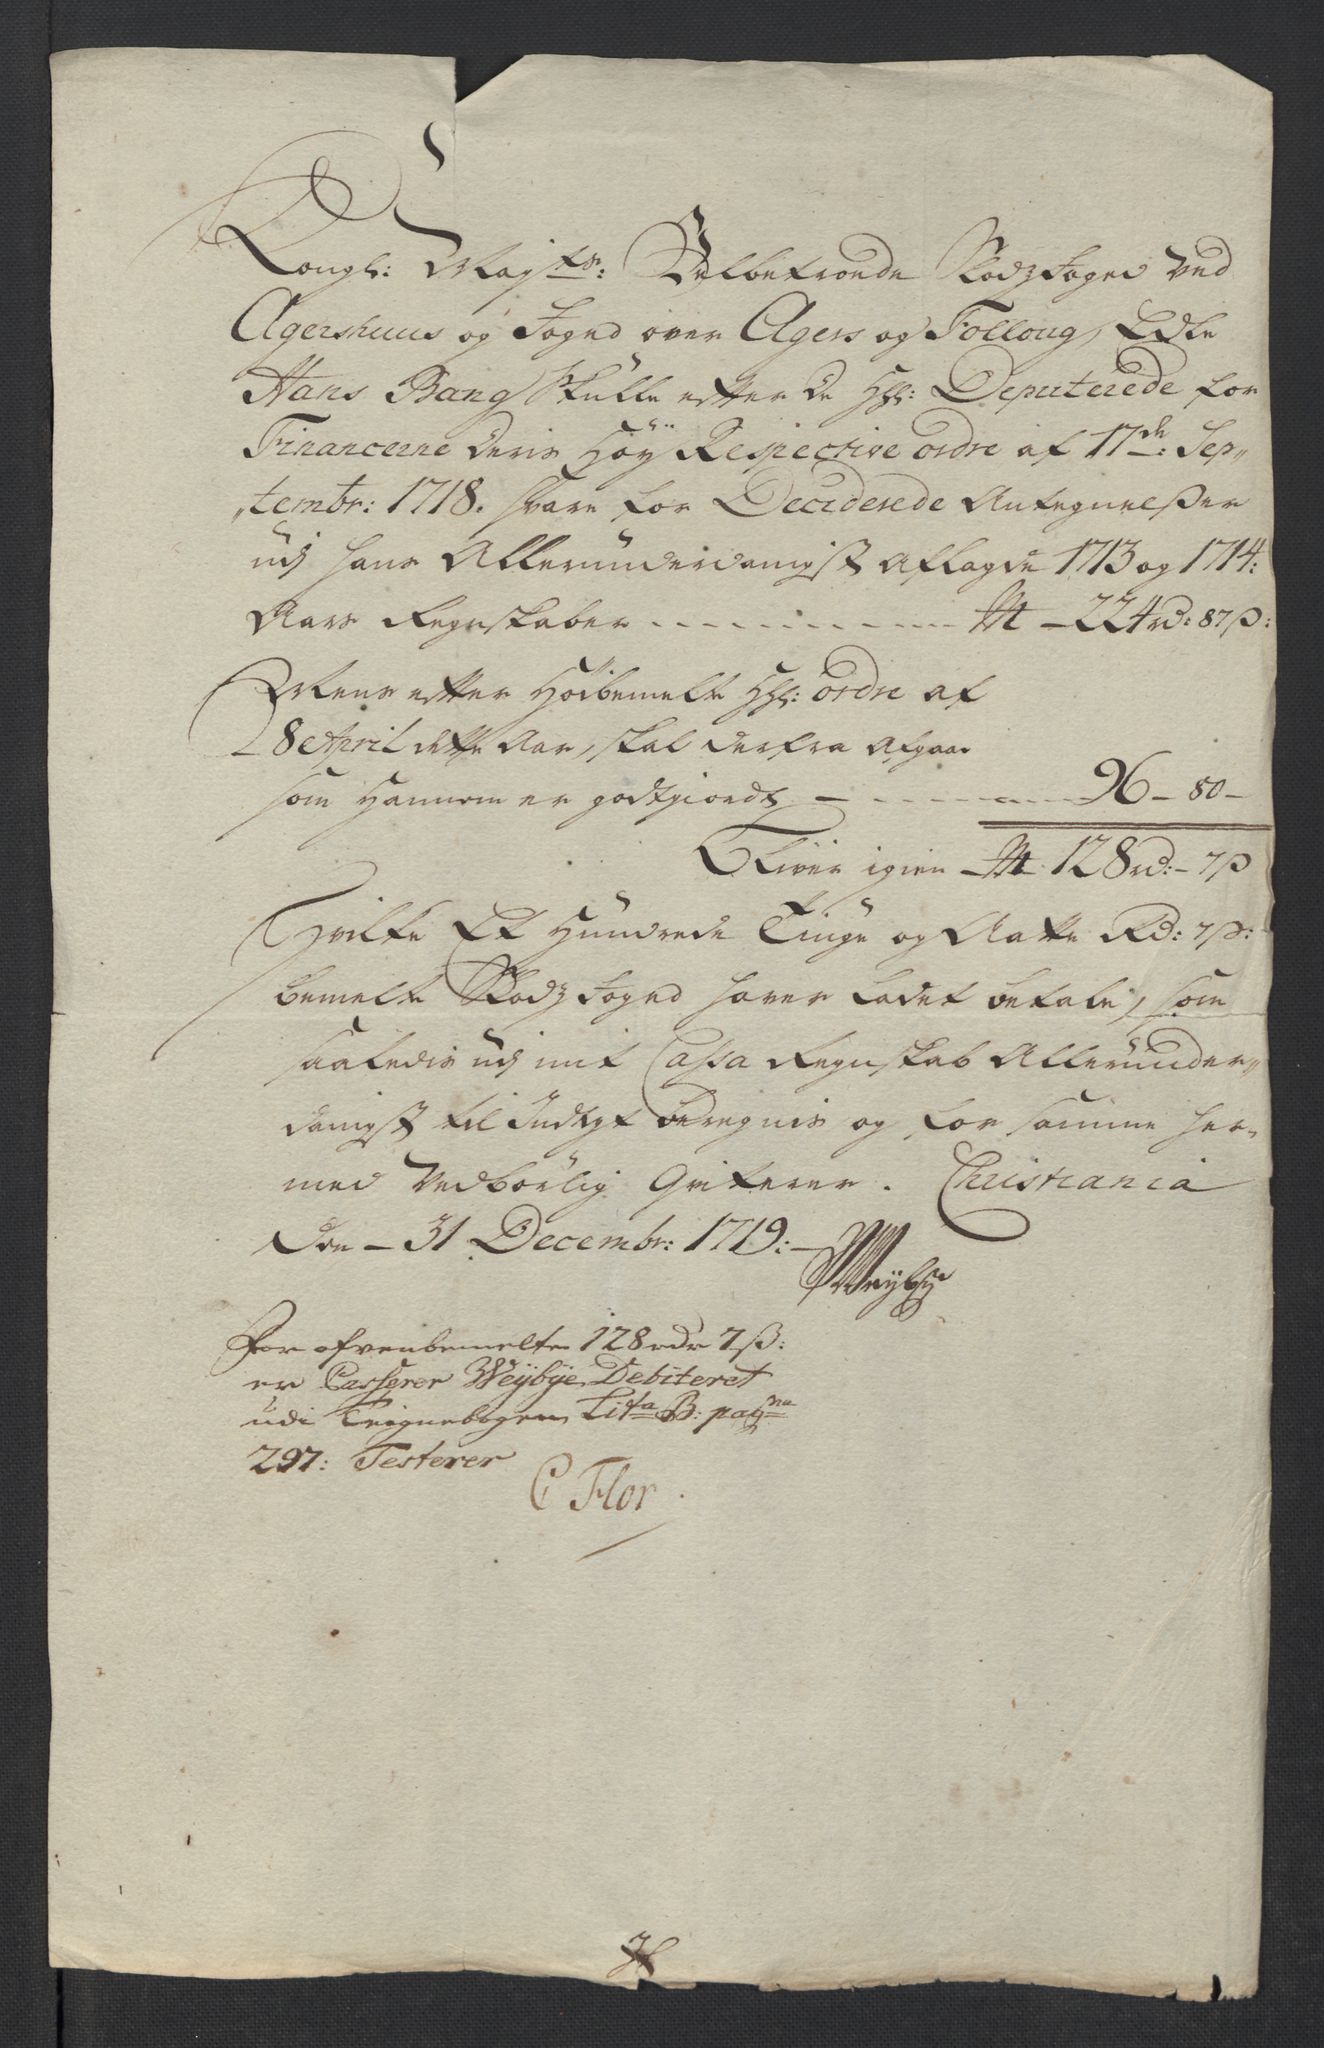 Kongl: Mayts: Velbetroede Slodz foged Ved
Agershuus og foged over Agers og Folloug, Edle
Hans Bang skulle efter de HHr: Deputerede for
Financerne deris Høÿ Respective ordre af 17de: Sep„
„tembr: 1718. svare for Deciderede Antegnelßer
udj hans Allerunderdanigst aflagde 1713 og 1714:
Aars Regnskaber - - - - - - - - 224 rd: 87 ß:
Mens efter Høibemelte HHr: ordre af
8 April dette Aar, skal derfra afgaae
som hannem er godtgiordt - - - - - 96 - 80 -
Bliver igien - 128 rd: - 7 ß
Hvilke Et Hundrede Tiuge og Aatte Rd: 7 ß:
bemelte Slodz foged haver ladet betale, som
saaledis udj mit Cassa Regnskab Allerunder„
danigst til Indtegt beregnis og for samme her„
med Vedbørlig Qviterer. Christiania
den - 31 Decembr: 1719: -
Weÿbye
For ofvenbemelte 128 rdr 7 ß:
er Casserer Weÿbye Debiteret
udi Teignebogen Lita B: pagna
297: Testerer
C Flor